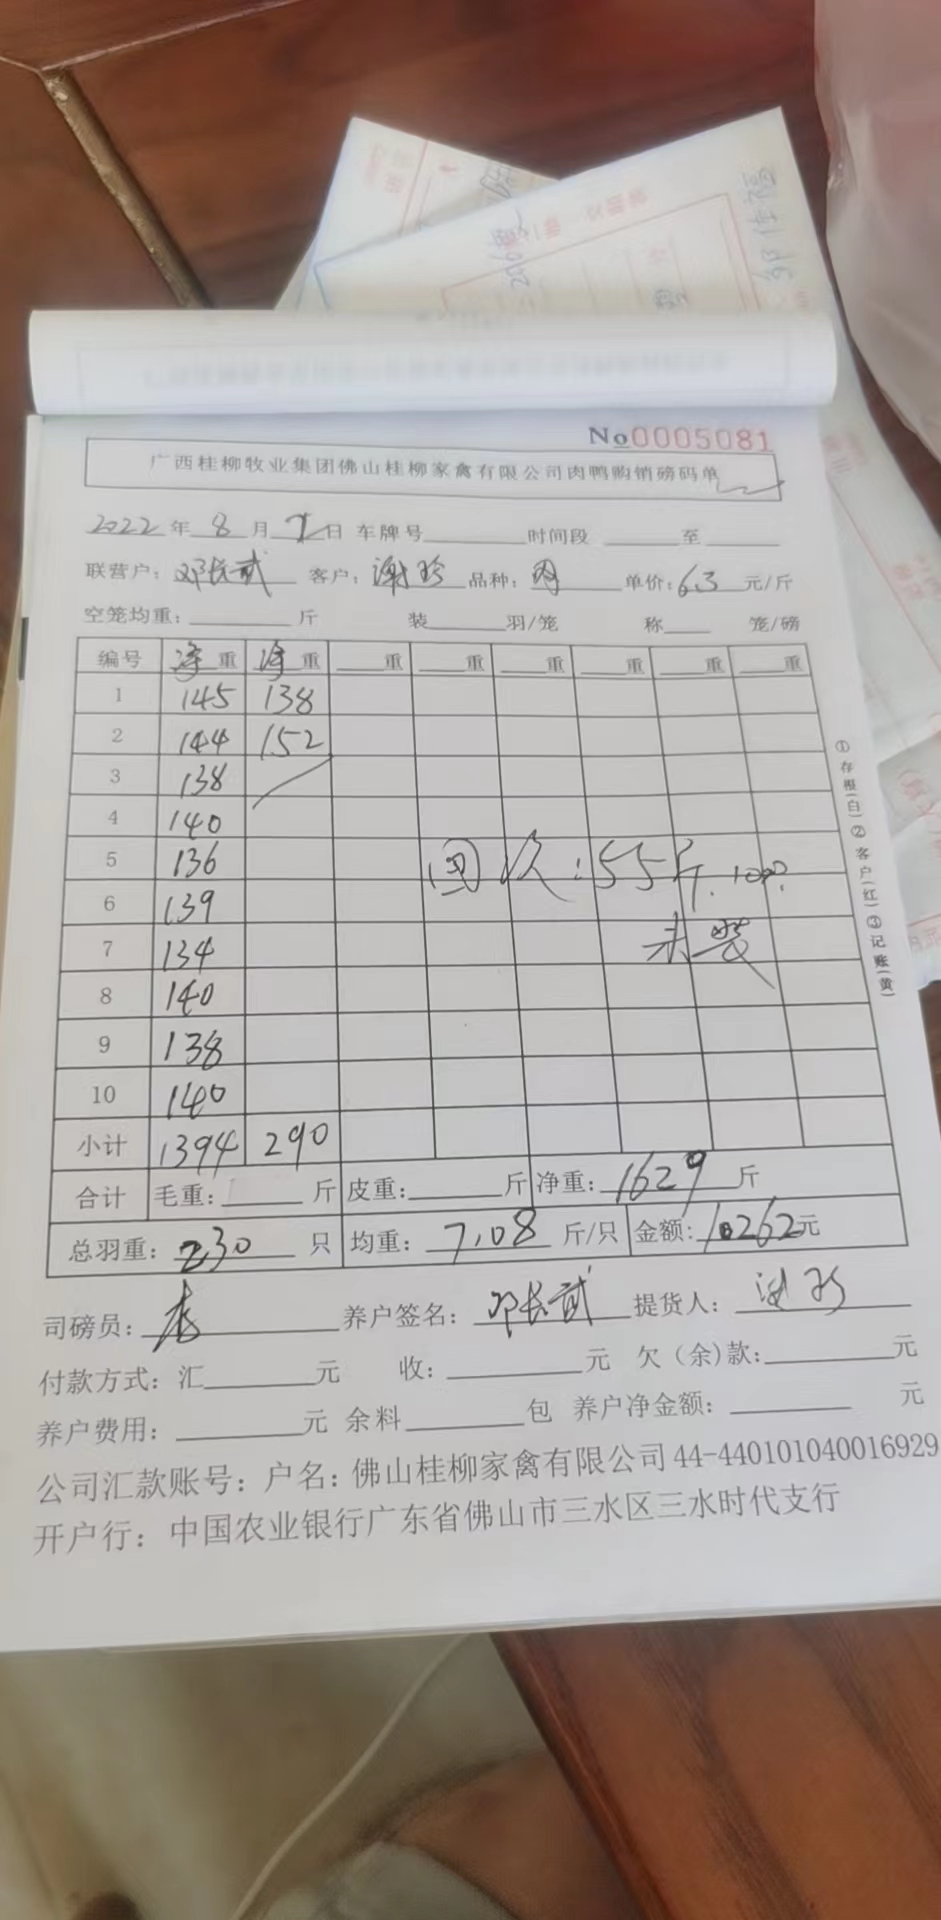 No 0005081
广西桂柳牧业集团佛山桂柳家禽有限公司肉鸭购销磅码单
2022 年 8 月 1 日 车牌号 时间段 至
联营户：邓长武 客户：谢珍 品种： 单价：6.3 元/斤
空笼均重： 斤 装 羽/笼 称 笼/磅
编号 净重 净重 重 重 重 重 重 重
1 145 138
2 144 152
3 138
4 140
5 136
6 139
7 134
8 140
9 138
10 140
小计 1394 290
次：55斤
未装
合计 毛重： 斤 皮重： 斤 净重：1629 斤
总羽重：230 只 均重：7.08 斤/只 金额：10262元
司磅员： 养户签名：邓长武 提货人：
付款方式：汇 元 收： 元 欠（余）款： 元
养户费用： 元 余料 包 养户净金额： 元
公司汇款账号：户名：佛山桂柳家禽有限公司 44-440101040016929
开户行：中国农业银行广东省佛山市三水区三水时代支行
①存根（白）②客户（红）③记账（黄）